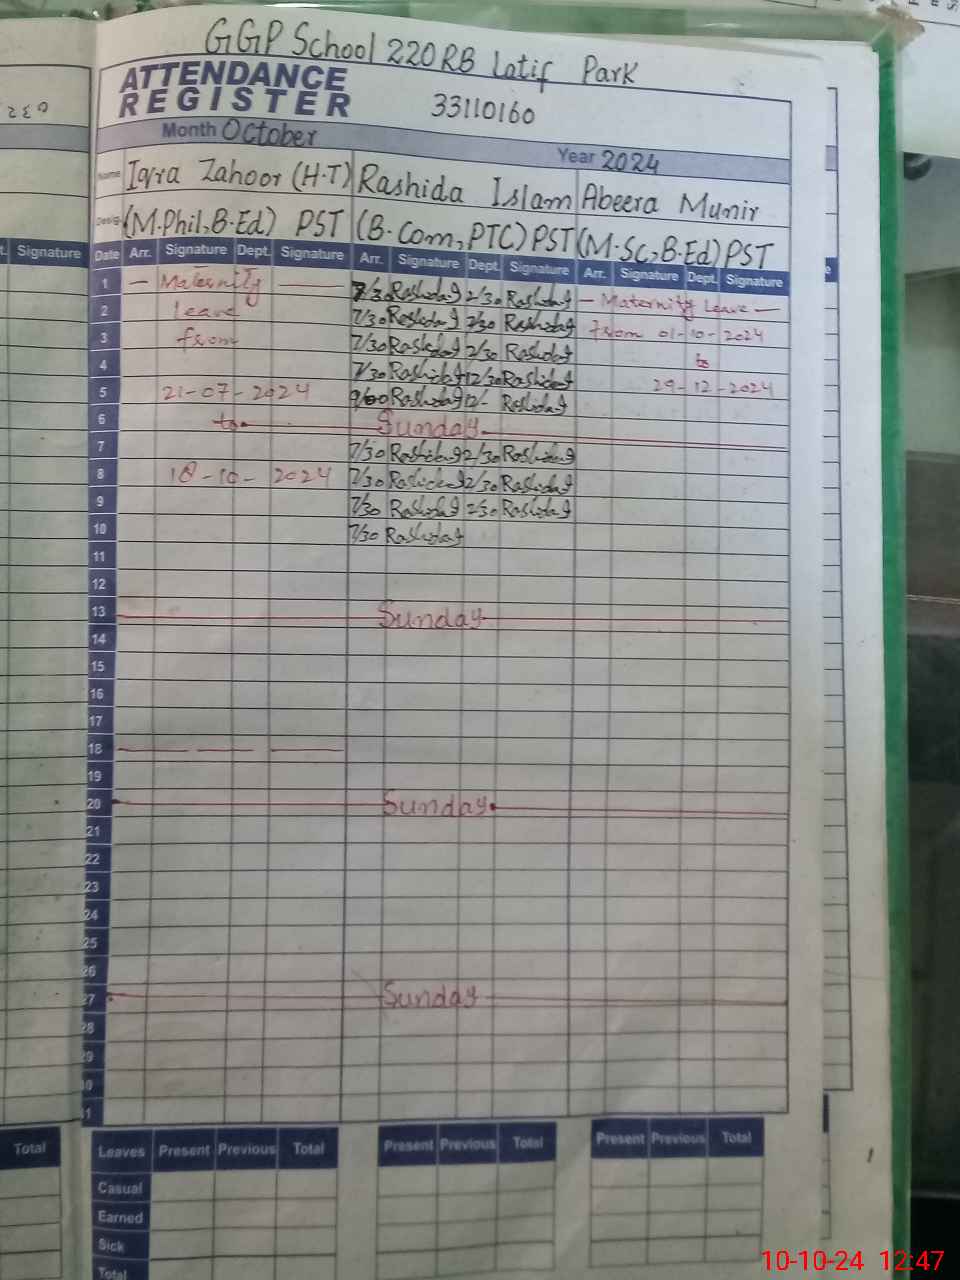 GGP School 220RB Latif Park
ATTENDANCE
REGISTER 33110160
Month October
Year 2024
Name Iqra Zahoor (H.T) Rashida Islam Abeera Munir
Desig. (M.Phil,B.Ed) PST (B.Com,PTC)PST (M.Sc,B.Ed)PST
Signature Date Arr. Signature Dept. Signature Arr. Signature Dept. Signature Arr. Signature Dept. Signature
1 — Maternity 7/30 Rashida 2/30 Rashida — Maternity Leave —
2 leave 7/30 Rashida 2/30 Rashida from 01-10-2024
3 from 7/30 Rashida 2/30 Rashida to
4 7/30 Rashida 12/30 Rashida 29-12-2024
5 21-07-2024 9/00 Rashida 12/- Rashida
6 to Sunday
7 7/30 Rashida 2/30 Rashida
8 18-10-2024 7/30 Rashida 2/30 Rashida
9 7/30 Rashida 2/30 Rashida
10 7/30 Rashida
11
12
13 Sunday
14
15
16
17
18
19
20 Sunday
21
22
23
24
25
26
27 Sunday
28
29
Total Leaves Present Previous Total Present Previous Total Present Previous Total
Casual
Earned
Sick
Total
10-10-24 12:47